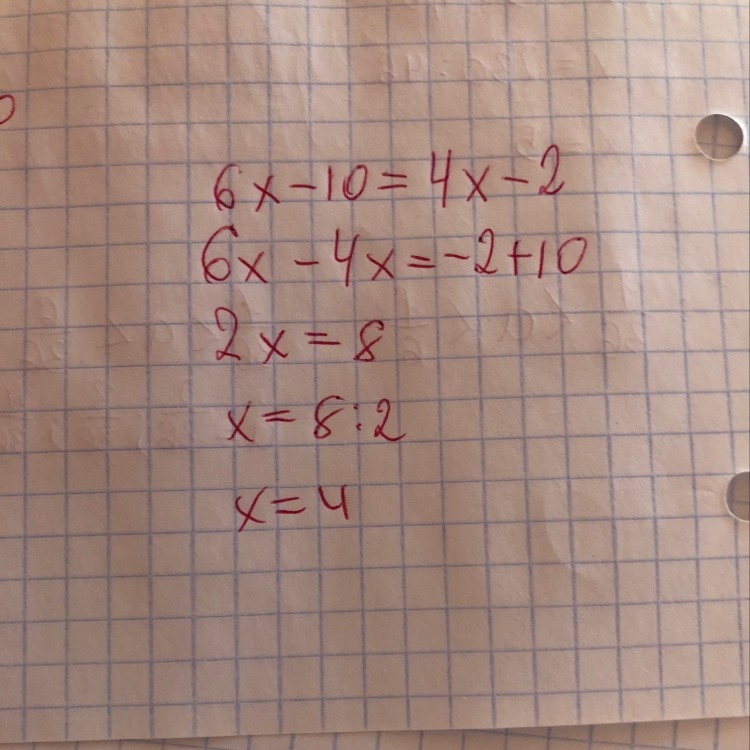 6x-10=4x-2
6x-4x=-2+10
2x=8
x=8:2
x=4